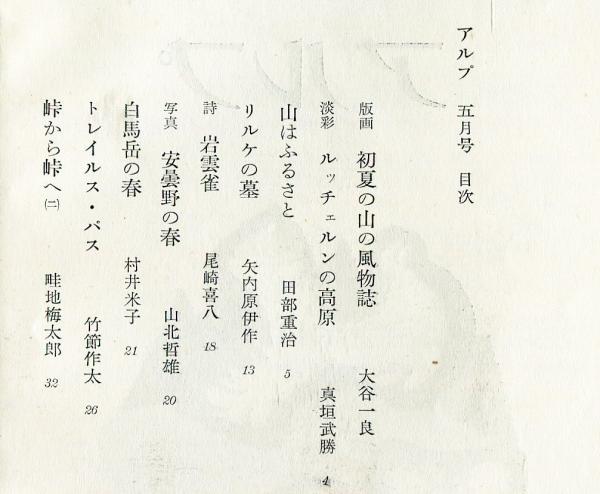 アルプ 五月号 目次
版画 初夏の山の風物誌 大谷一良
淡彩 ルッチェルンの高原 真垣武勝 4
山はふるさと 田部重治 5
リルケの墓 矢内原伊作 13
詩 岩雲雀 尾崎喜八 18
写真 安曇野の春 山北哲雄 20
白馬岳の春 村井米子 21
トレイルス・パス 竹節作太 26
峠から峠へ㈡ 畦地梅太郎 32